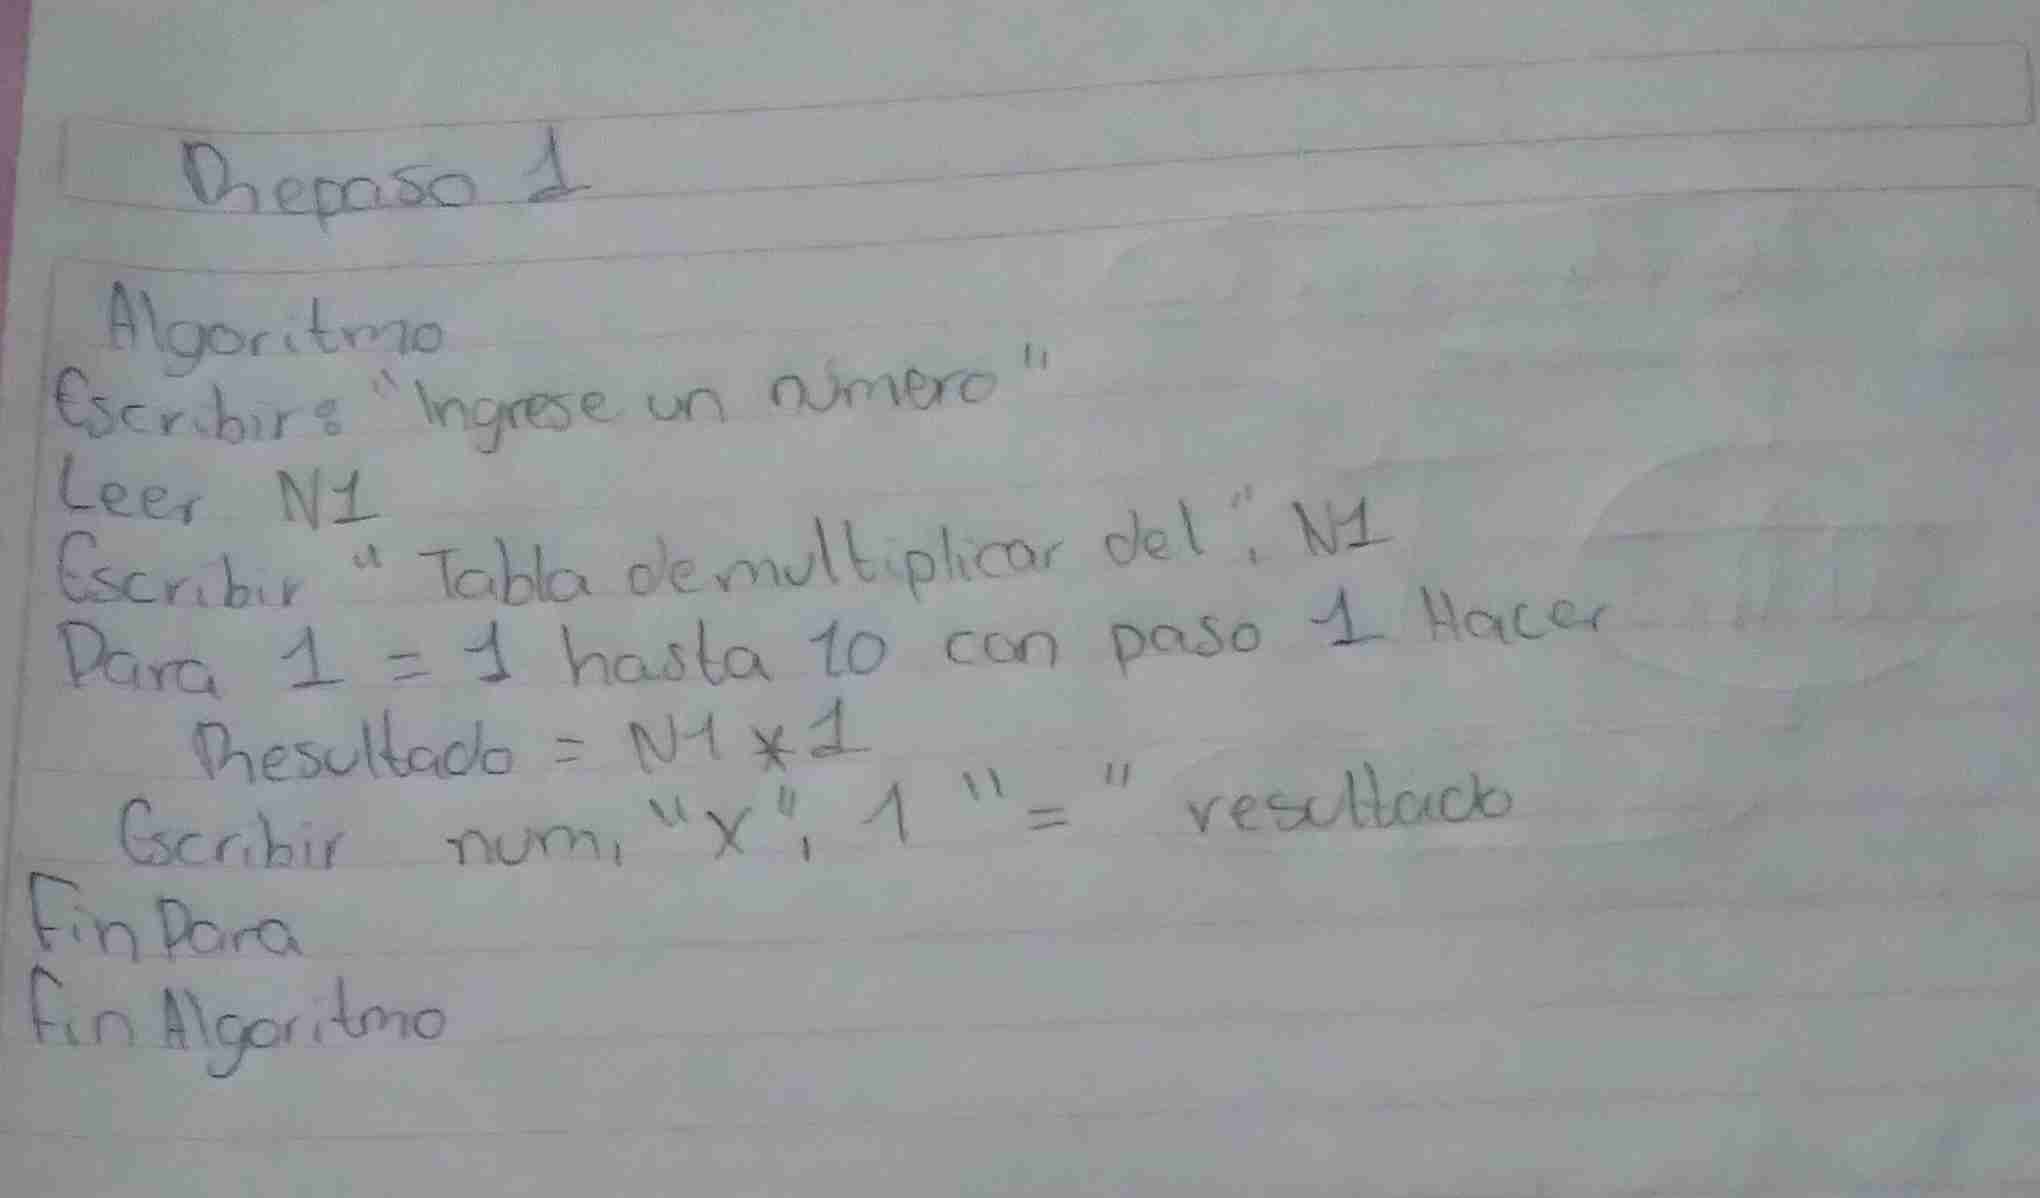 Repaso 1
Algoritmo
Escribir: "Ingrese un número"
Leer N1
Escribir "Tabla de multiplicar del", N1
Para 1 = 1 hasta 10 con paso 1 Hacer
Resultado = N1 * 1
Escribir num, "x", 1 "=" resultado
Fin Para
Fin Algoritmo